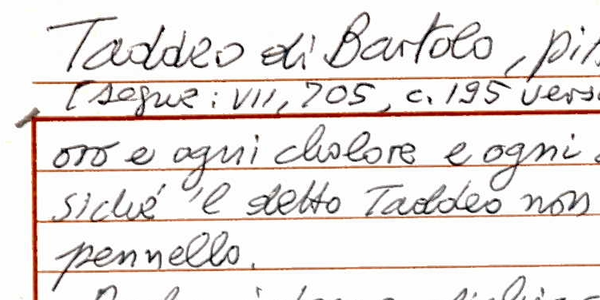 Taddeo di Bartolo, pit
[segue: VII, 705, c. 195 vers
oro e ogni cholore e ogni
siché 'l detto Taddeo non
pennello.